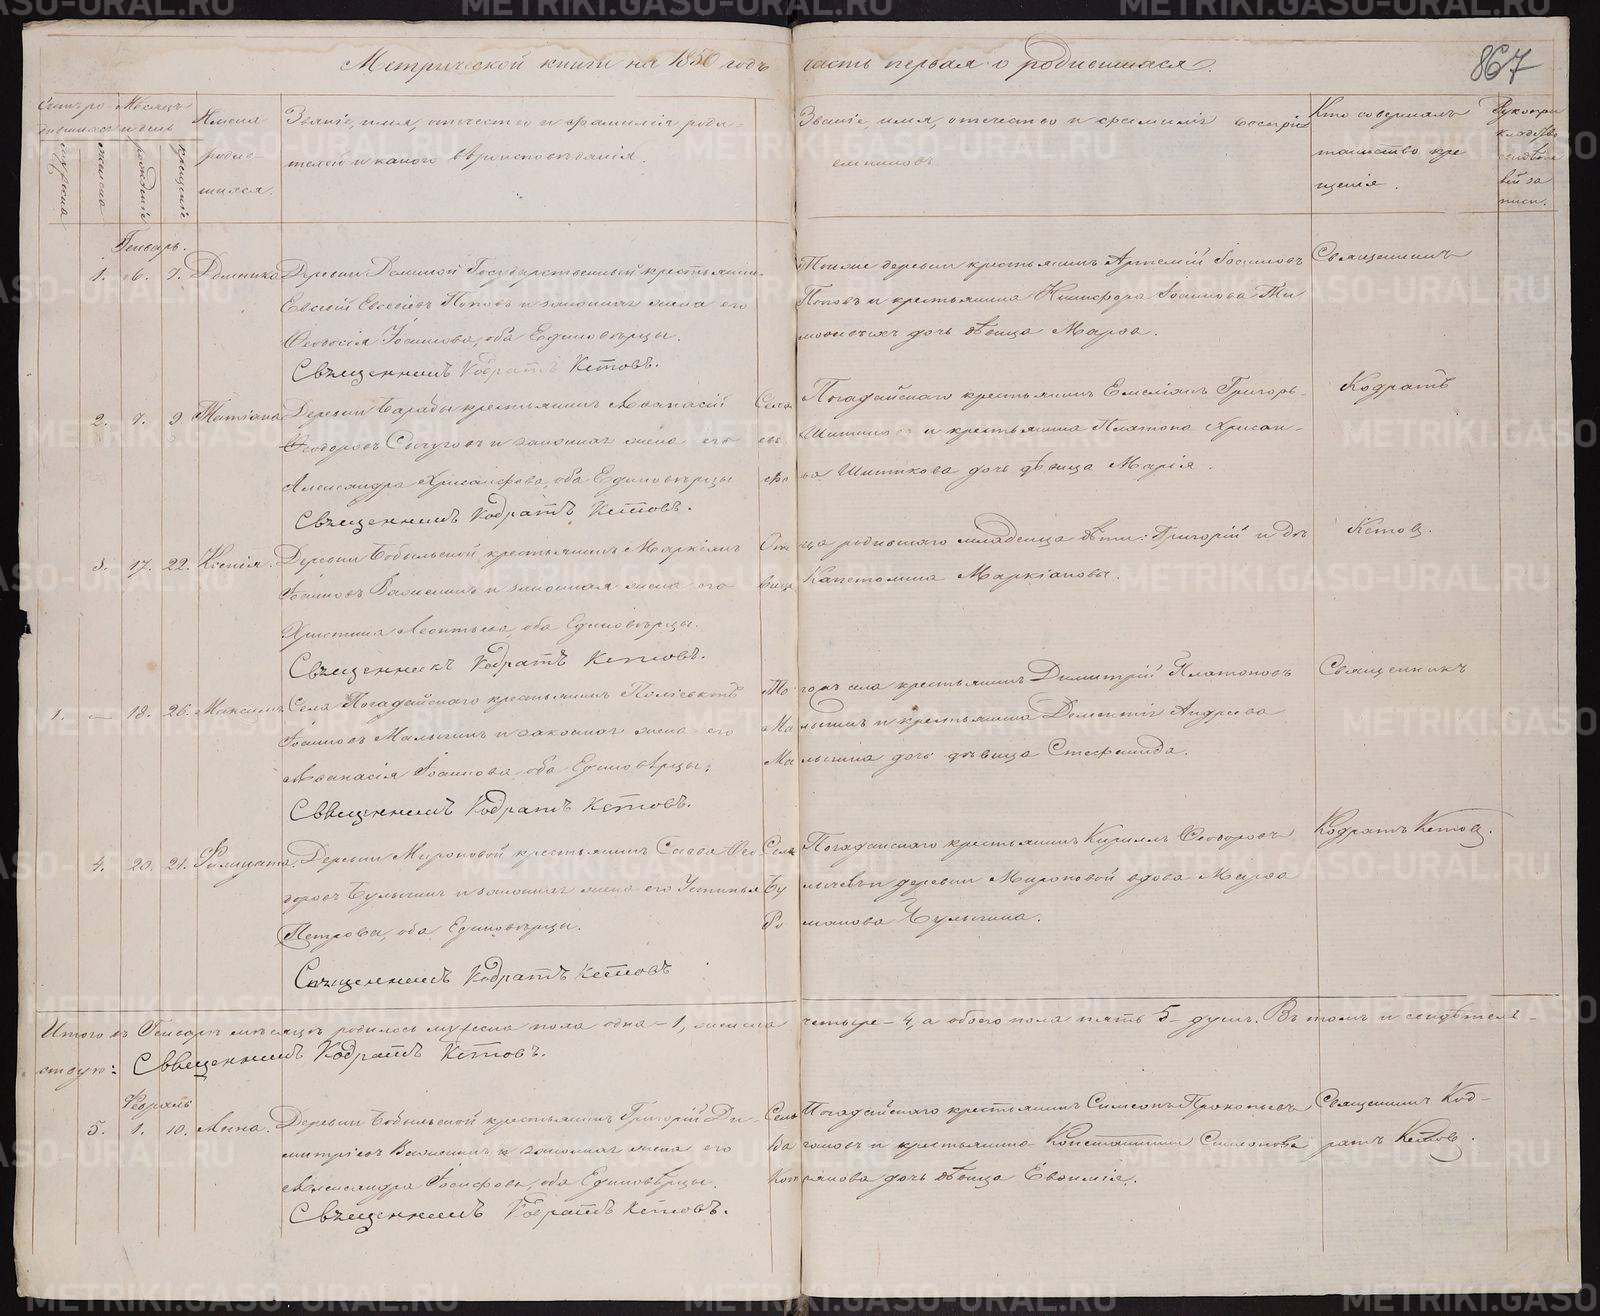 Метрической книги на 1850 годъ часть первая о родившихся.
867
Счетъ родившихся
Месяцъ и день
мужеска
женска
рожденія
крещенія
Имена родившихся.
Званіе, имя, отечество и фамилія родителей и какого вѣроисповѣданія.
Званіе, имя, отечество и фамилія воспріемниковъ
Кто совершалъ таинство крещенія.
Генварь.
1. 6. 7. Домника
Деревни
Государственный крестьянинъ
Евсевій Евсеевъ Поповъ и законная жена его
Ѳеодосія Іоаннова, оба Единовѣрцы.
Священникъ Кодратъ Кетовъ.
Тоеже деревни крестьянинъ Артемій Іоанновъ
Поповъ и крестьянина Никифора Іоаннова
дочь дѣвица Марѳа.
Священникъ
2. 7. 9. Татіана
Деревни Барабы крестьянинъ Аѳанасій
Ѳеодоровъ и законная жена его
Александра Хрисанфова, оба Единовѣрцы
Священникъ Кодратъ Кетовъ.
Села Погадайскаго крестьянинъ Емеліанъ Григорьевъ
и крестьянина Платона Хрисанфова
дочь дѣвица Марія.
Кодратъ
3. 17. 22. Ксенія.
Деревни Бобыльской, крестьянинъ Маркіанъ
Іоанновъ Важенинъ и законная жена его
Христина Леонтьева, оба Единовѣрцы.
Священникъ Кодратъ Кетовъ.
Отца родившаго младенца дѣти: Григорій и дѣвица
Капетолина Маркіановы.
Кетовъ.
1. — 18. 26. Максимъ
Села Погадайскаго крестьянинъ Поліевктъ
Іоанновъ Малыгинъ и законная жена его
Аѳанасія Іоаннова, оба Единовѣрцы.
Священникъ Кодратъ Кетовъ.
Тогожъ села крестьянинъ Димитрій Платоновъ
Малыгинъ и крестьянина Дометія Андреева
Малыгина дочь дѣвица Стефанида.
Священникъ
4. 20. 21. Фелицата.
Деревни Мироновой крестьянинъ Савва Ѳеодоровъ
Булыгинъ и законная жена его Устинья
Петрова, оба Единовѣрцы.
Священникъ Кодратъ Кетовъ
Села Погадайскаго крестьянинъ Кириллъ Ѳеодоровъ
и деревни Мироновой вдова Марѳа
Романова Булыгина.
Кодратъ Кетовъ.
Итого въ Генварѣ мѣсяцѣ родилось мужеска пола одна – 1, женска четыре – 4, а обоего пола пять 5 – душъ. Въ томъ и свидѣтельствую:
Священникъ Кодратъ Кетовъ.
Февраль
5. 1. 10. Анна.
Деревни Бобыльской крестьянинъ Григорій Димитріевъ
Важенинъ и законная жена его
Александра Іосифова, оба Единовѣрцы.
Священникъ Кодратъ Кетовъ.
Села Погадайскаго крестьянинъ Симеонъ Прокопьевъ
и крестьянина Константина Симеонова
дочь дѣвица Евѳимія.
Священникъ Кодратъ Кетовъ.
METRIKI.GASO-URAL.RU